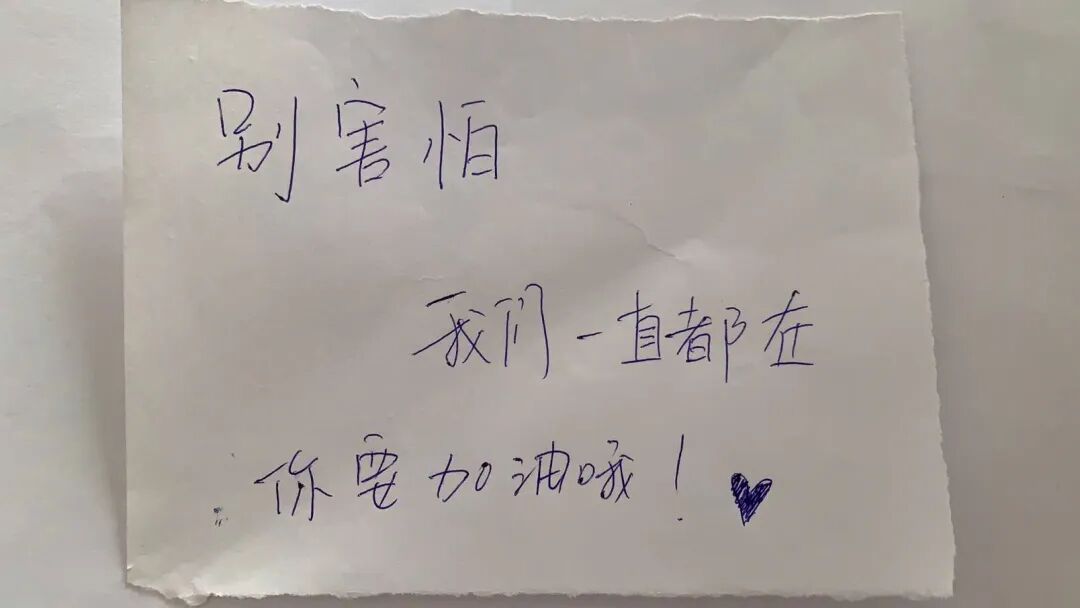 别害怕
我们一直都在
你要加油哦！